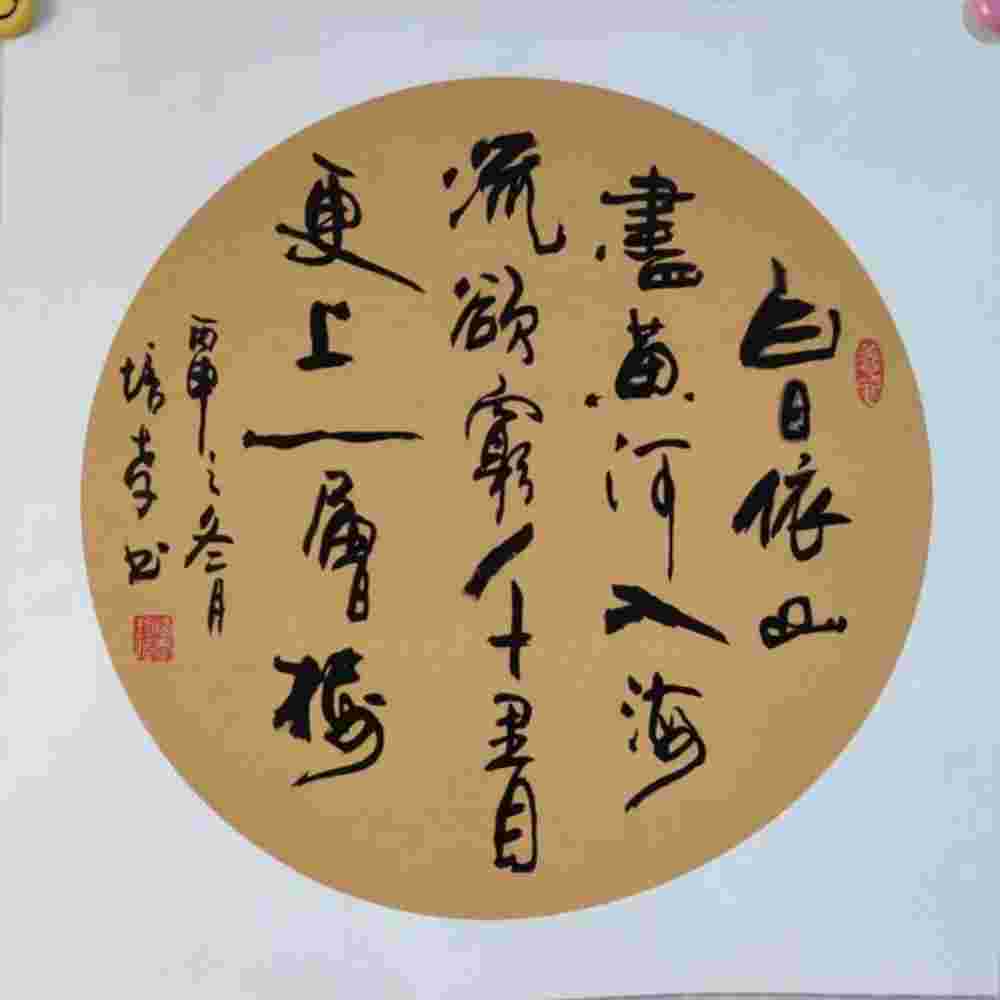 白日依山
盡黄河入海
流欲窮千里目
更上一層樓
丙申之冬月
培孝书